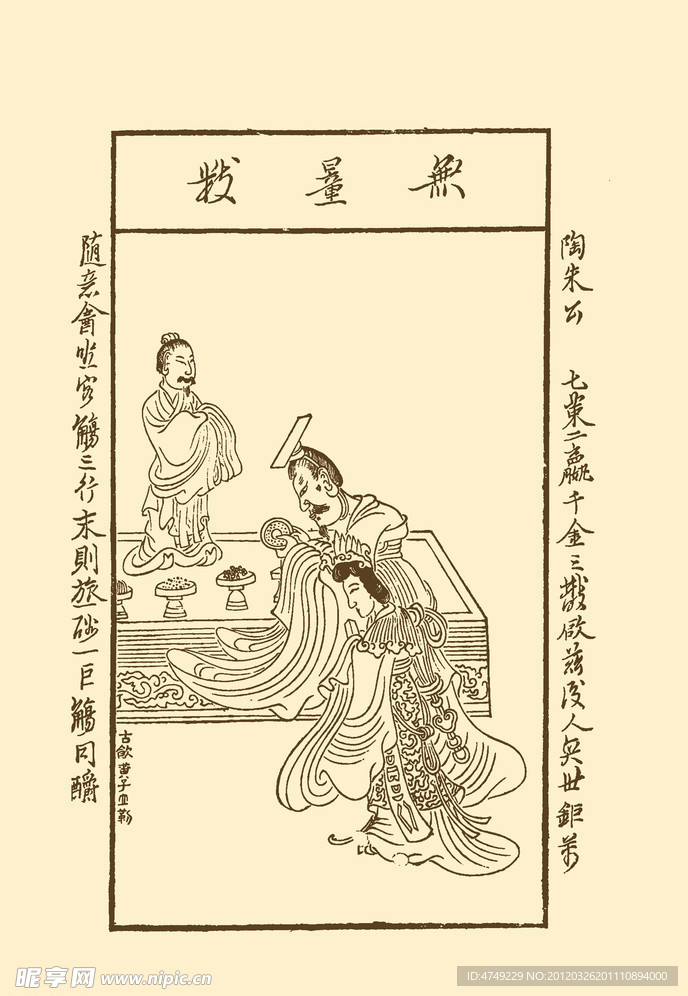 無量数
陶朱公 七策二嬴千金三散 茲後人奕世鉅萬
随意會坐客觴三行末則旅 一巨觴同
古歙黄子立勒
昵享网 www.nipic.cn
ID:4749229 NO:20120326201110894000